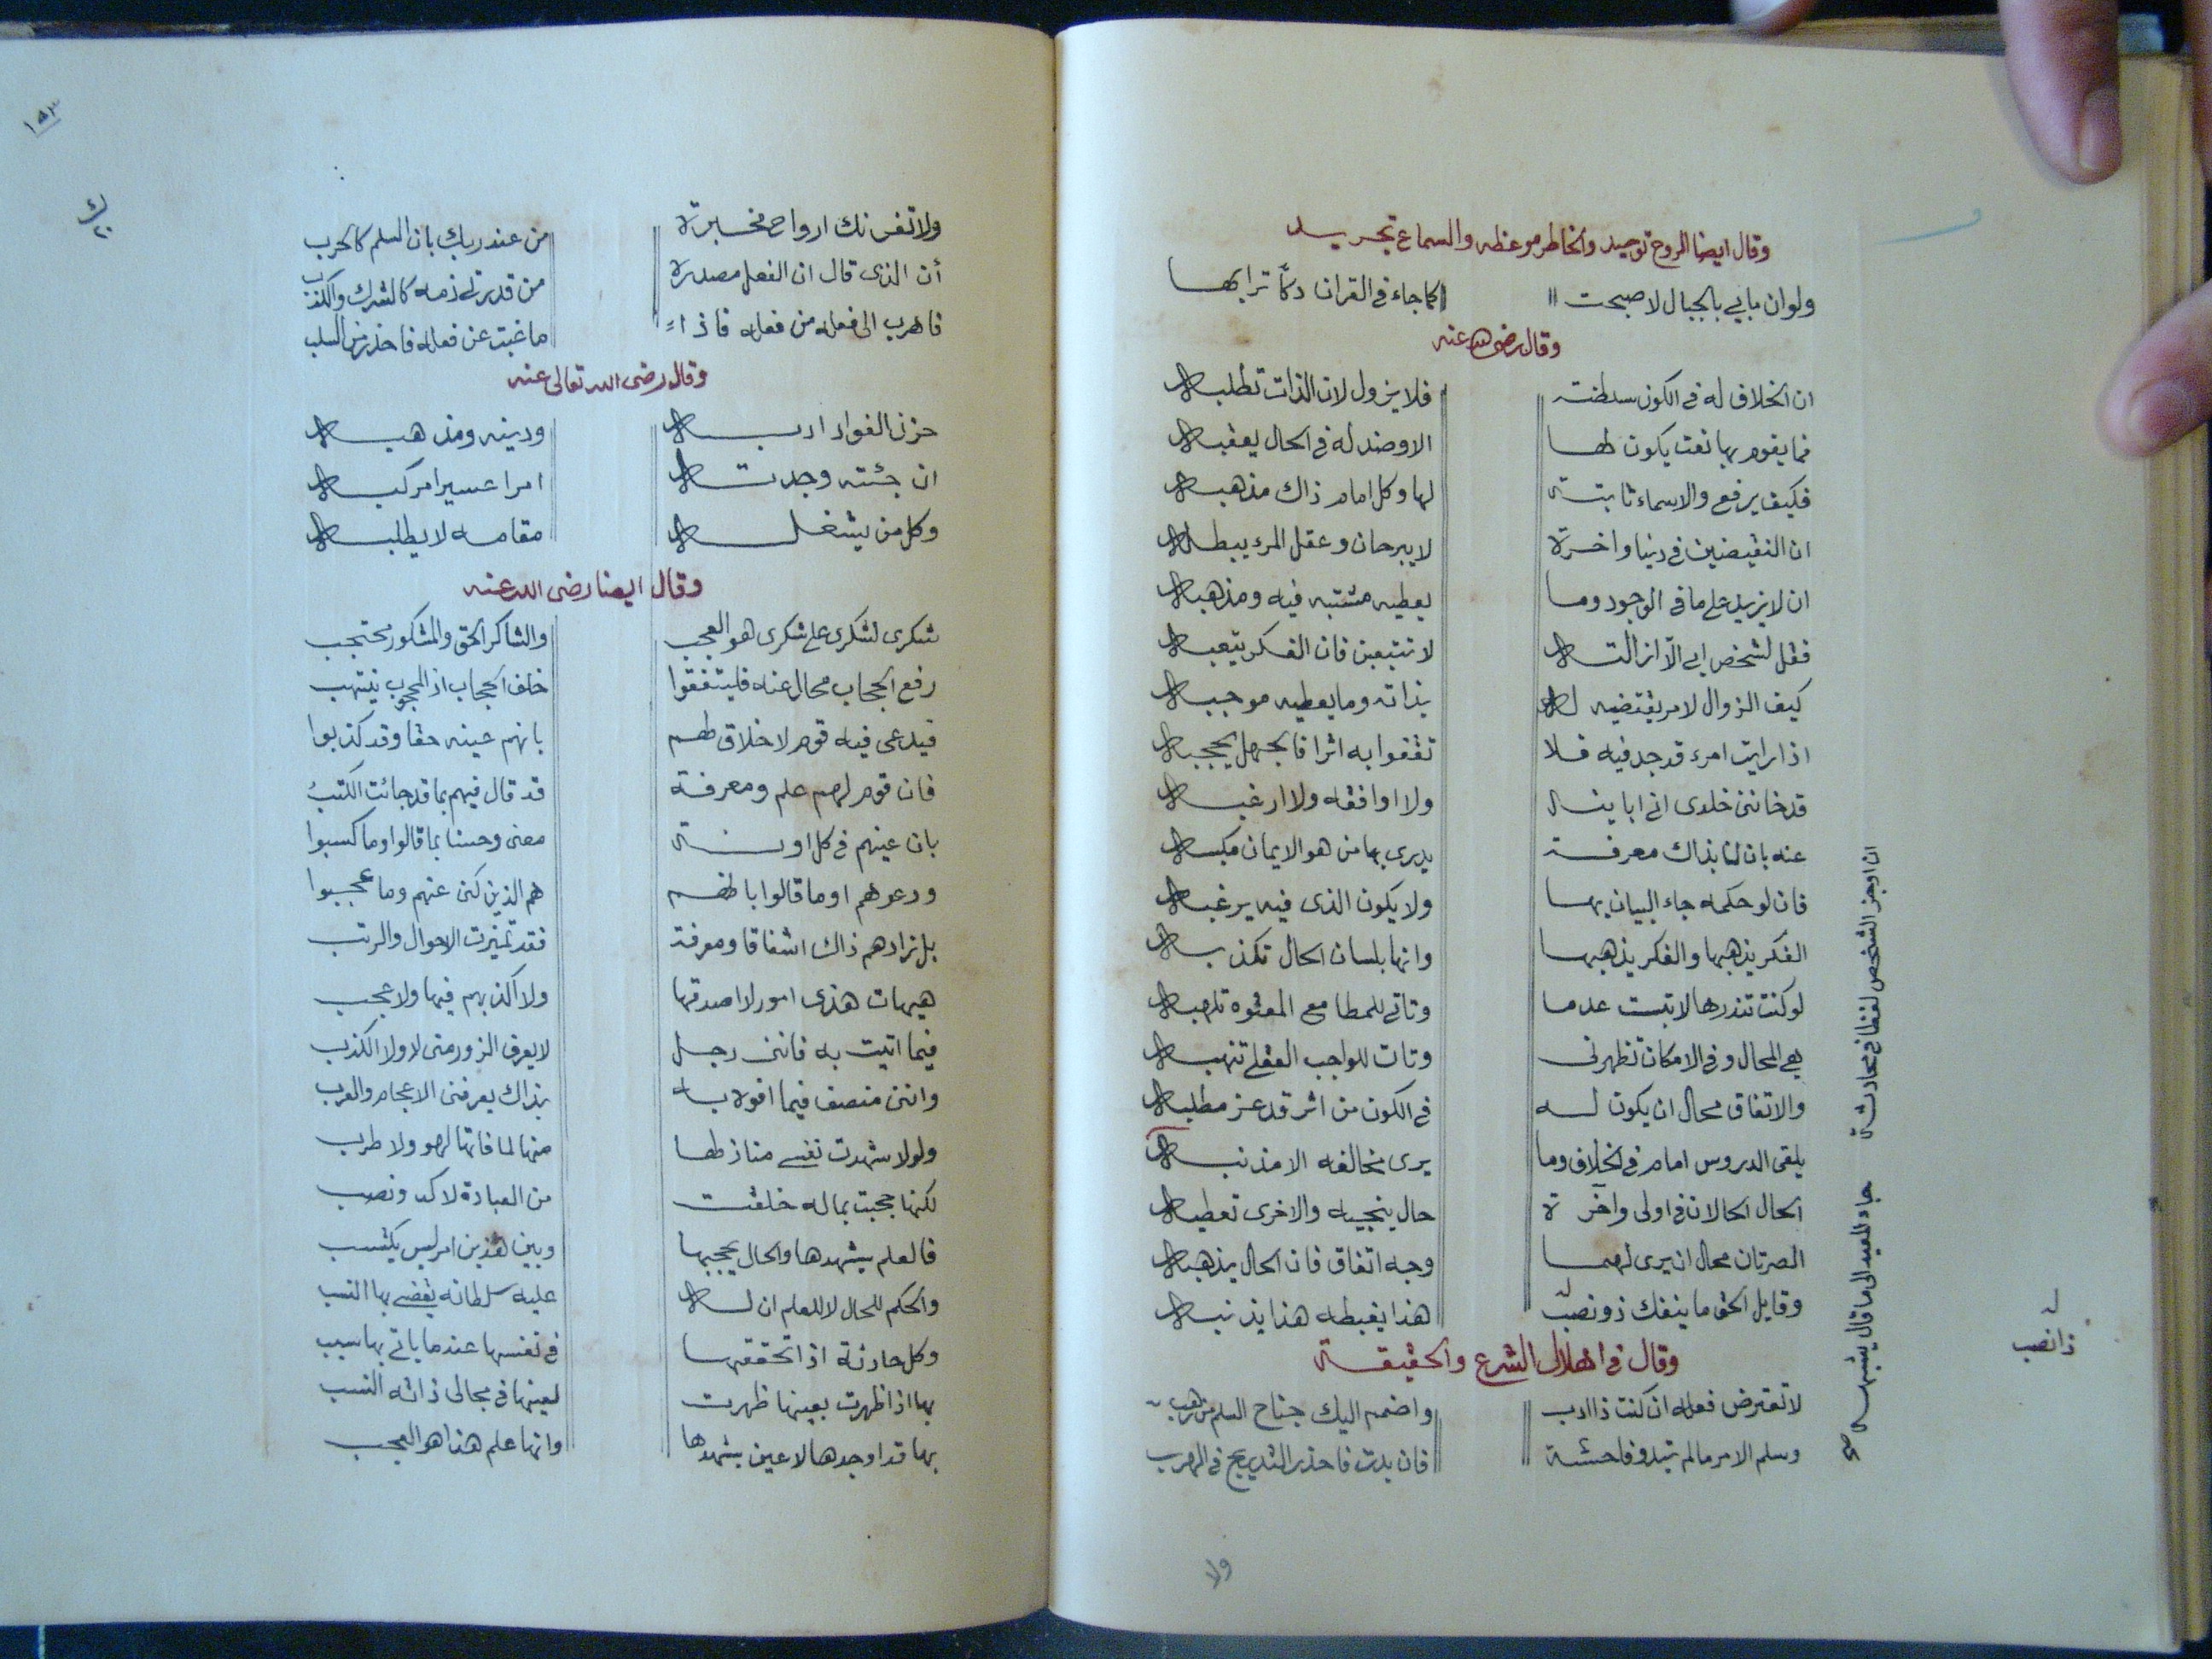 وقال ايضا الروح توحيد والخاطر موعظه والسماع تجريد
ولوان مابي بالجبال لاصبحت كما جاء في القران دكا ترابها
وقال رضي الله عنه
ان الخلاف له في الكون سلطنة فلا يزول لان الذات تطلبه
فما يقوم بها نعت يكون لها الا وضد له في الحال يعقبه
فكيف يرفع والاسماء ثابتة لها وكل امام ذاك مذهبه
ان النقيضين في دنيا واخرة لا يبرحان وعقل المرء يبطله
ان لا يزيد على ما في الوجود وما يعطيه مشتبه فيه ومذهبه
فقل لشخص ابى الا ازالته لا تتبعن فان الفكر يتعبه
كيف الزوال لامر يقتضيه له بذاته وما يعطيه موجبه
اذا رايت امرء قد جد فيه فلا تقفوا به اثرا فالجهل يحجبه
قد خانني خلدى اني اباينه ولا اوافقه ولا ارغبه
عنه بان لنا بذاك معرفة يدرى بها من هو الايمان مكسبه
فان لو حكمه جاء البيان بها ولا يكون الذى فيه يرغبه
الفكر يذهبها والفكر يذهبها وانها بلسان الحال تكذبه
لو كنت تنذرها لاتبست عدما وتاتي للمطامع
هي المحال وفي الامكان تظهر لي وتات للواجب العقلي تنهبه
والاتفاق محال ان يكون له في الكون من اثر قد عز مطلبه
يلقى الدروس امام في الخلاف وما يرى مخالفه الا مذنبه
الحال الحالان في اولى وآخرة حال ينجيه والاخرى تعطبه
الضرتان محال ان يرى لهما وجه اتفاق فان الحال يذهبه
وقايل الحق ما ينفك ذو نصب هذا يغبطه هذا يذنبه
وقال في الشرع والحقيقة
لا تعترض فعله ان كنت ذا ادب واضمم اليك جناح السلم من رهب
وسلم الامر مالم تبدو فاحشة فان بدت فاحذر التدريج في الهرب
ان اوجز الشخص لفظا في محادثة جاء البعيد الى ما قال ينسبه صح
ذا نصب
ولا
ولا تغرنك ارواح مخبرة من عند ربك بان السلم كالحرب
أن الذى قال ان الفعل مصدره من قدرتي ذمه كالشرك والكذب
فاهرب الى فعله من فعله فاذا ما غبت عن فعاله فاحذر من السلب
وقال رضي الله تعالى عنه
حزن الفواد ادبه ودينه ومذهبه
ان جئته وجدته امرا عسيرا مركبه
وكل من يشغله مقامه لا يطلبه
وقال ايضا رضي الله عنه
شكرى لشكرى على شكرى هو العجب والشاكر الحق والمشكور محتجب
رفع الحجاب محال عنه فليتفقوا خلف الحجاب اذ المحجوب ينتهب
فيدعى فيه قوم لا خلاق لهم بانهم عينه حقا وقد كذبوا
فان قوم لهم علم ومعرفة قد قال فيهم بما قد جائت الكتب
بان عينهم في كل اونة معنى وحسنا بما قالوا وما كسبوا
ودعوهم او ما قالوا باطنهم هم الذين كنى عنهم وما عجبوا
بل زادهم ذاك اشفاقا ومعرفة فقد تميزت الاحوال والرتب
هيهات هذى امور لا اصدقها ولا اكذبهم فيها ولا عجب
فيما اتيت به فانني رجل لا يعرف الزور مني لا ولا الكذب
وانني منصف فيما افوه به بذاك يعرفني الاعجام والعرب
ولو لا شهدت نفسي منازلها منها لما فاتها لهو ولا طرب
لكنها حجبت بما له خلقت من العبادة لا كد ونصب
فالعلم يشهدها والحال يحجبها وبين هذين امر ليس يكتسب
والحكم للحال لا للعلم ان له عليه سلطانه يقضي بها النسب
وكل حادثة اذا تحققها في نفسها عند ما ياتي بها سبب
بها اذا ظهرت بعينها ظهرت لعينها في مجالي ذاته النسب
بها قد اوجدها لا عين يشهدها وانها علم هذا هو العجب
١٥٣